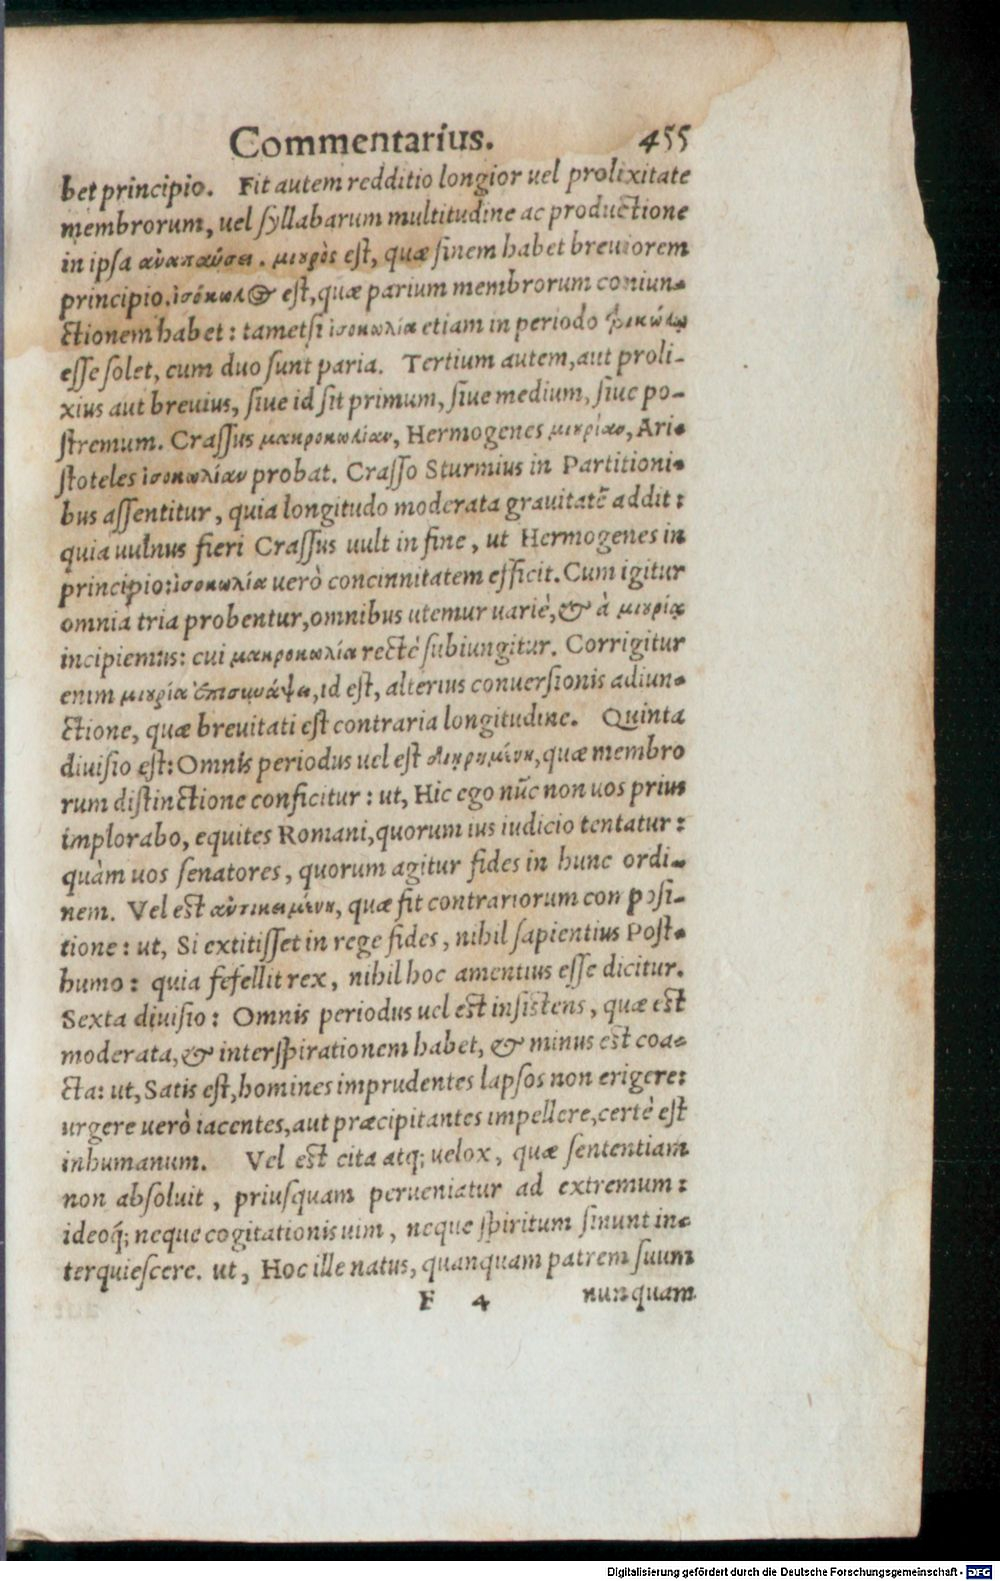 Commentarius. 455
bet principio. Fit autem redditio longior uel prolixitate
membrorum, uel syllabarum multitudine ac productione
in ipsa ἀναπαύσει. μειυρὸς est, quæ finem habet breuiorem
principio. ἰσόκωλος est, quæ parium membrorum coniun-
ctionem habet: tametsi ἰσοκωλία etiam in periodo τρικώλῳ
esse solet, cum duo sunt paria. Tertium autem, aut proli-
xius aut breuius, siue id sit primum, siue medium, siue po-
stremum. Crassus μακροκωλίαν, Hermogenes μειυρίαν, Ari-
stoteles ἰσοκωλίαν probat. Crasso Sturmius in Partitioni-
bus assentitur, quia longitudo moderata grauitatē addit:
quia uulnus fieri Crassus uult in fine, ut Hermogenes in
principio: ἰσοκωλία uerò concinnitatem efficit. Cum igitur
omnia tria probentur, omnibus utemur uariè, & à μειυρίᾳ
incipiemus: cui μακροκωλία rectè subiungitur. Corrigitur
enim μειυρία ἐπισυνάψει, id est, alterius conuersionis adiun-
ctione, quæ breuitati est contraria longitudine. Quinta
diuisio est: Omnis periodus uel est διῃρημένη, quæ membro
rum distinctione conficitur: ut, Hic ego nūc non uos prius
implorabo, equites Romani, quorum ius iudicio tentatur:
quàm uos senatores, quorum agitur fides in hunc ordi-
nem. Vel est ἀντικειμένη, quæ fit contrariorum con posi-
tione: ut, Si extitisset in rege fides, nihil sapientius Post-
humo: quia fefellit rex, nihil hoc amentius esse dicitur.
Sexta diuisio: Omnis periodus uel est insistens, quæ est
moderata, & interspirationem habet, & minus est coa-
cta: ut, Satis est, homines imprudentes lapsos non erigere:
urgere uerò iacentes, aut præcipitantes impellere, certè est
inhumanum. Vel est cita atq; uelox, quæ sententiam
non absoluit, priusquam perueniatur ad extremum:
ideoq́; neque cogitationis uim, neque spiritum sinunt in-
terquiescere. ut, Hoc ille natus, quanquam patrem suum
F 4 nunquam
Digitalisierung gefördert durch die Deutsche Forschungsgemeinschaft - DFG